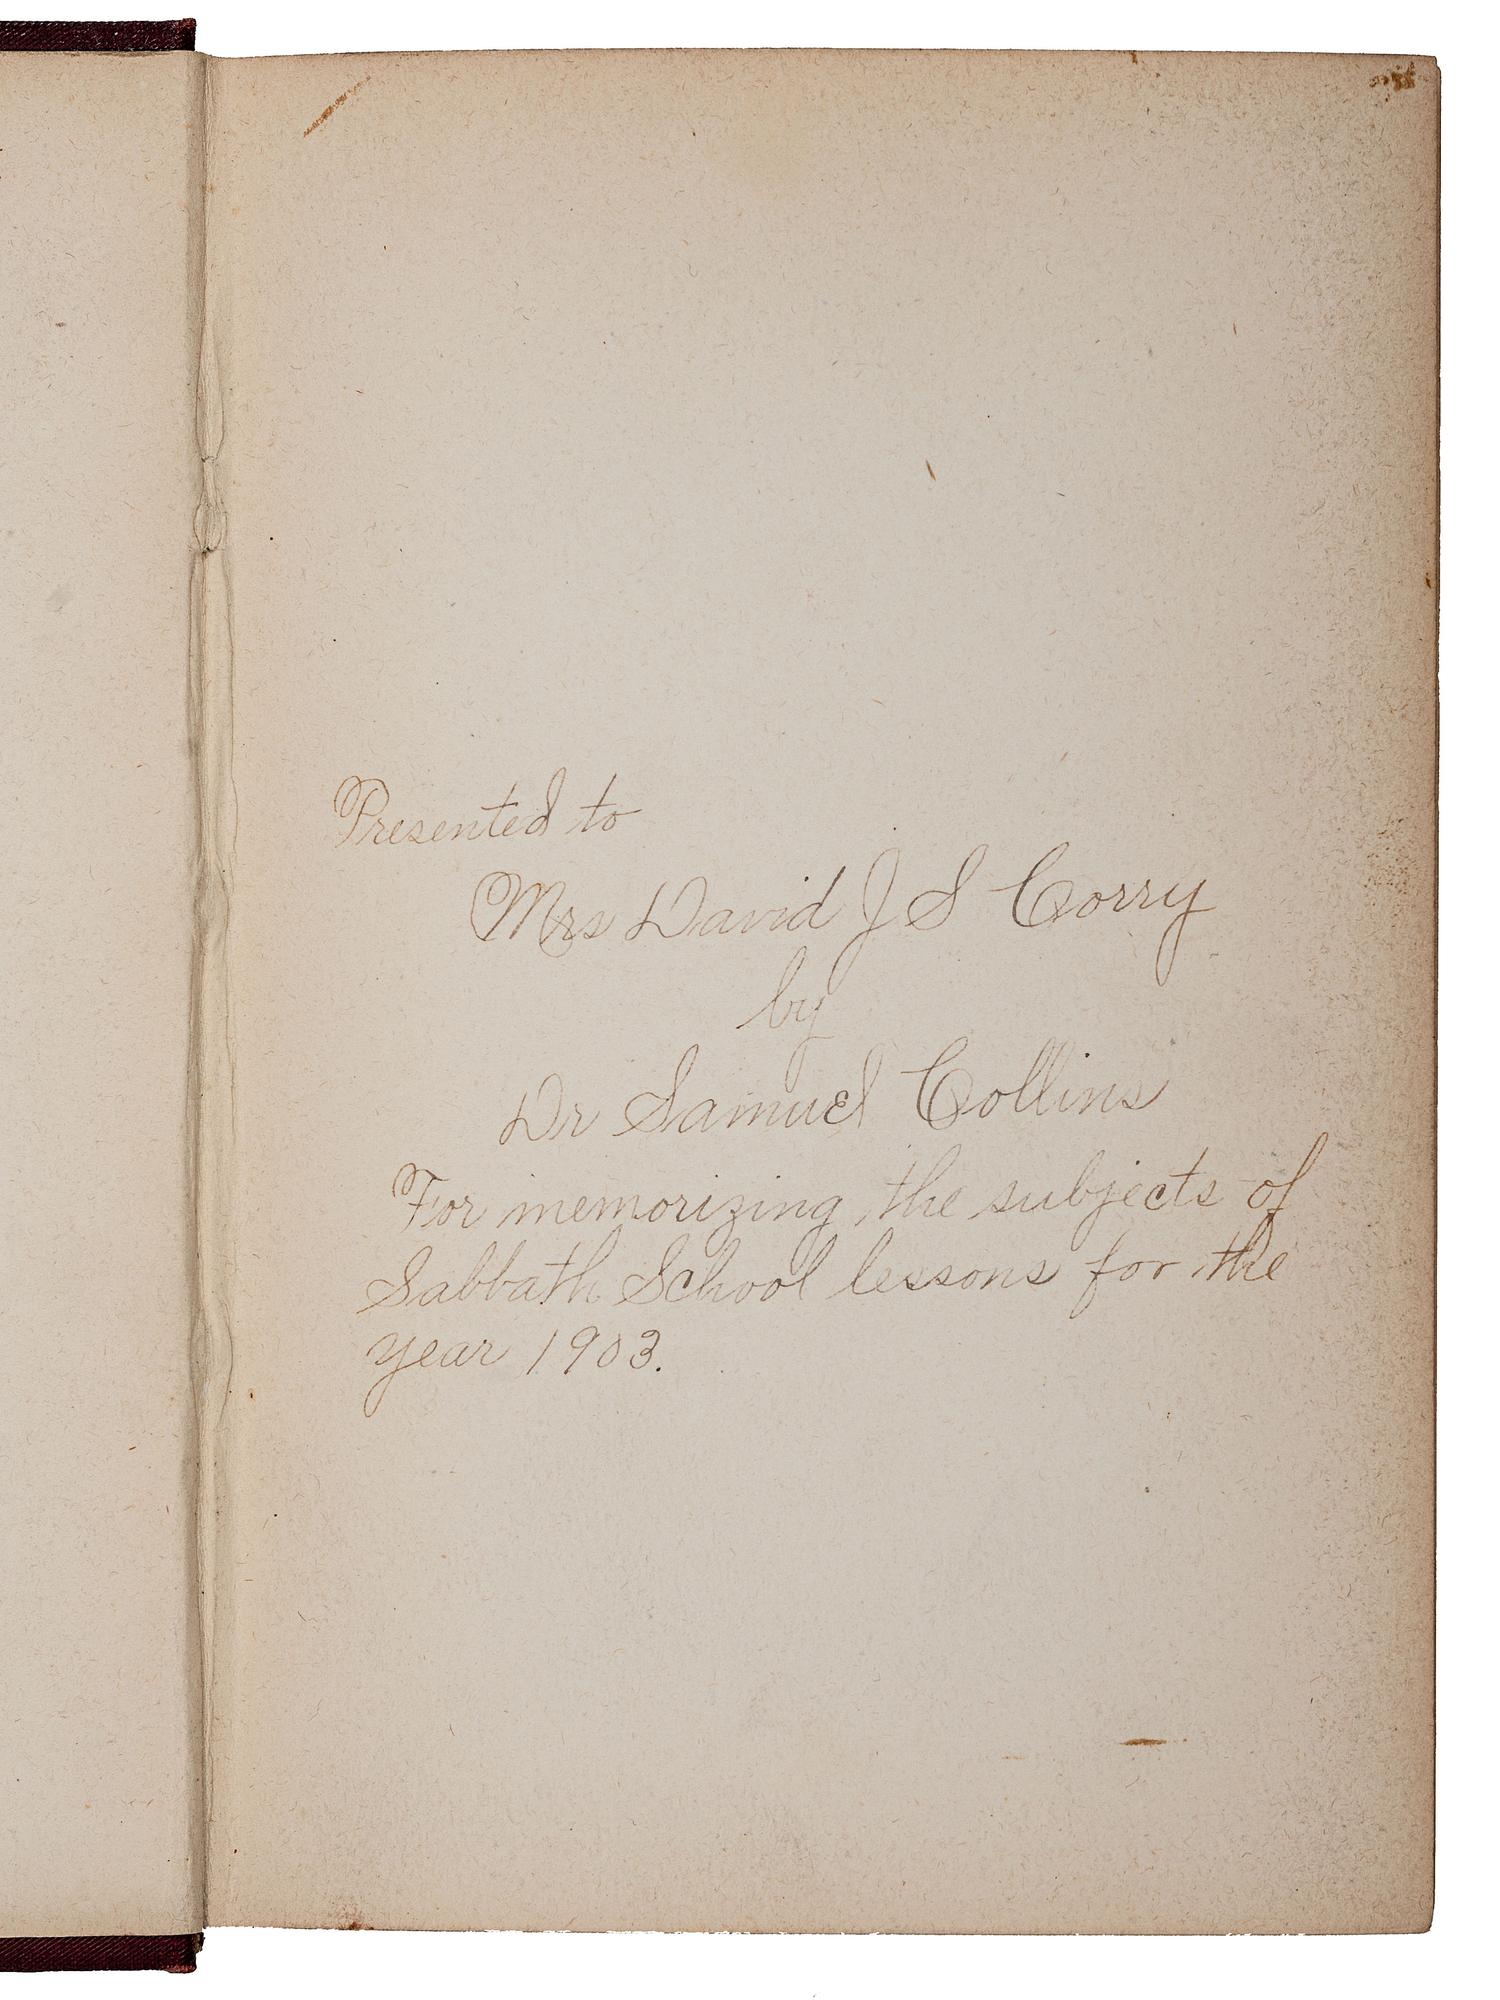 Presented to
Mrs David J S Corry
by
Dr Samuel Collins
For memorizing the subjects of
Sabbath School lessons for the
year 1903.